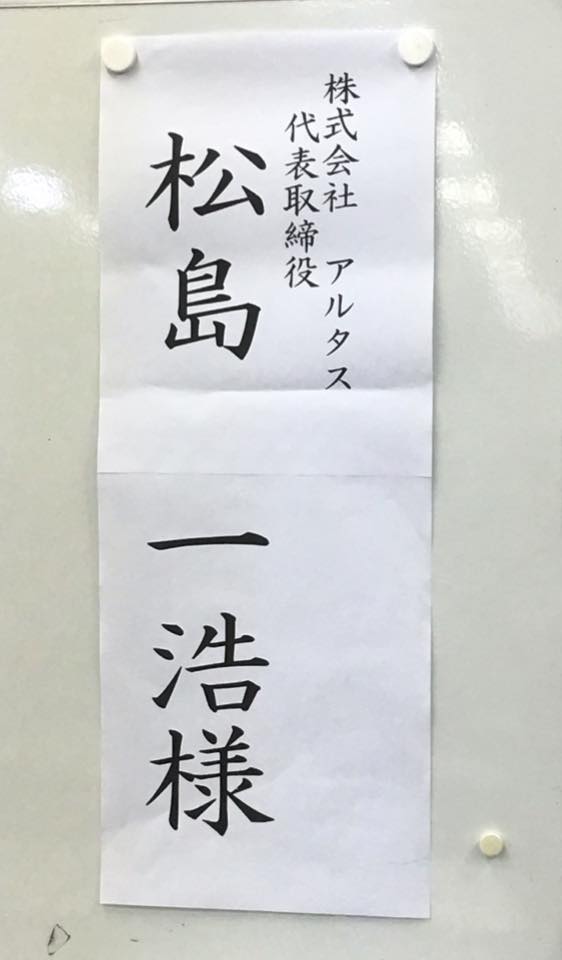 株式会社 アルタス
代表取締役
松島 一浩様